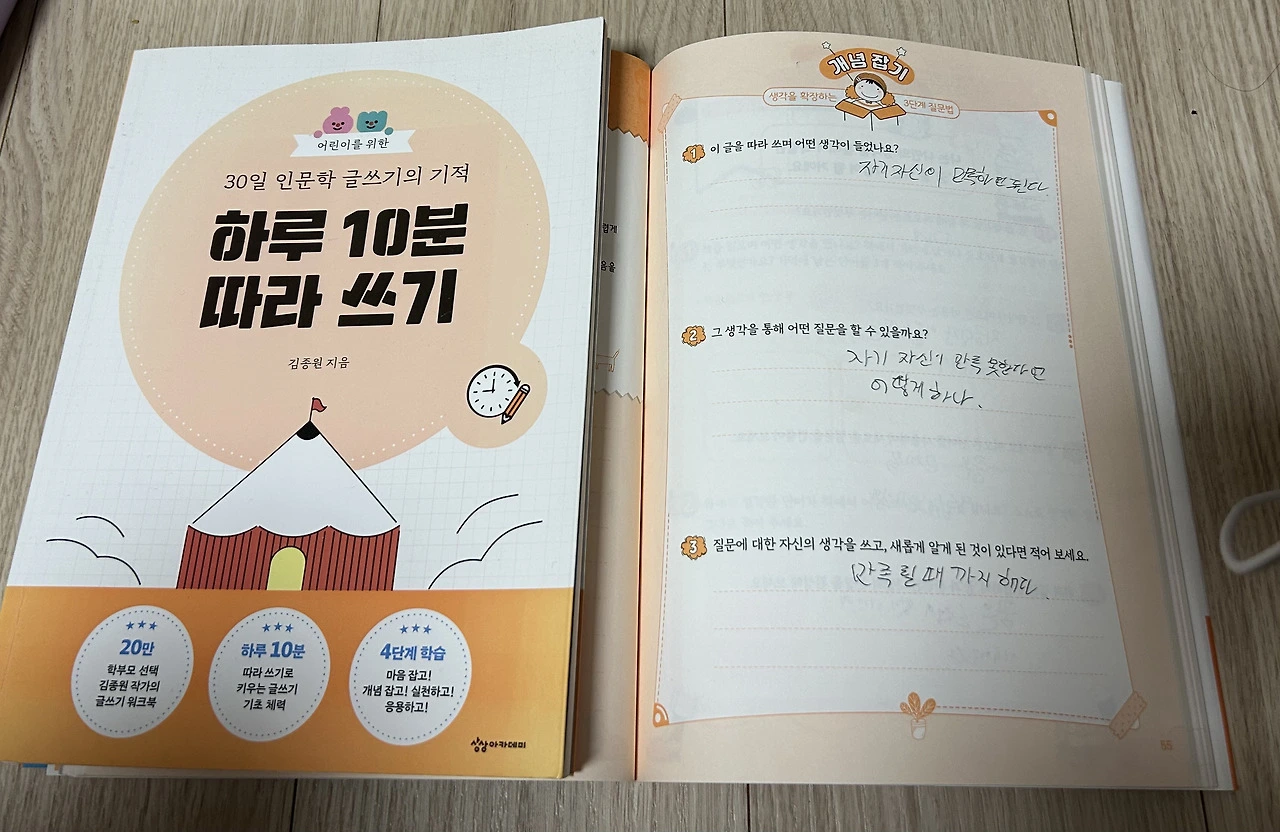 어린이를 위한
30일 인문학 글쓰기의 기적
하루 10분
따라 쓰기
김종원 지음
20만
학부모 선택
김종원 작가의
글쓰기 워크북
하루 10분
따라 쓰기로
키우는 글쓰기
기초 체력
4단계 학습
마음 잡고!
개념 잡고! 실천하고!
응용하고!
상상아카데미
렵게
음을
개념 잡기
생각을 확장하는 3단계 질문법
1 이 글을 따라 쓰며 어떤 생각이 들었나요?
자기 자신이 만족하면 된다
2 그 생각을 통해 어떤 질문을 할 수 있을까요?
자기 자신이 만족 못한다면
어떻게 하나.
3 질문에 대한 자신의 생각을 쓰고, 새롭게 알게 된 것이 있다면 적어 보세요.
만족 될 때 까지 해다.
55